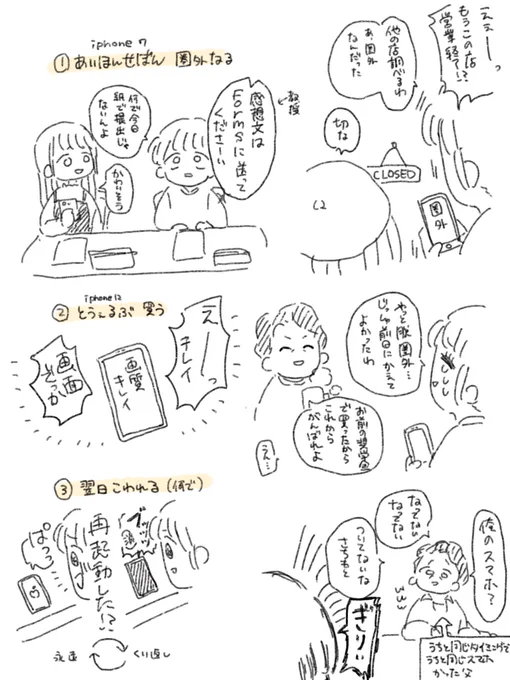 iphone 7
① あいほんせぶん 圏外なる
教授
感想文は
Formsに送って
くださーい
何で今日
紙で提出じゃ
ないんよ
かわいそう
えぇーっ
もうこの店
営業終了!?
他の店調べるわ
あ、圏外
なんだった
切な
CLOSED
圏外
iphone 12
② とぅえるぶ 買う
えーっ
キレイ
画質
キレイ
画面
でか
やっと脱圏外…
じっしゅ前日にかえて
よかったわ
お前の奨学金
で買ってたから
これから
がんばれよ
うえ…
③ 翌日こわれる(何で)
ブッッ
再起動した!?
ぱっ
永遠
くり返し
俺のスマホ?
なってない
なってない
ついてないな
さちもと
ぎりぃ
www
うちと同じタイミングで
うちと同じスマホ
かった父